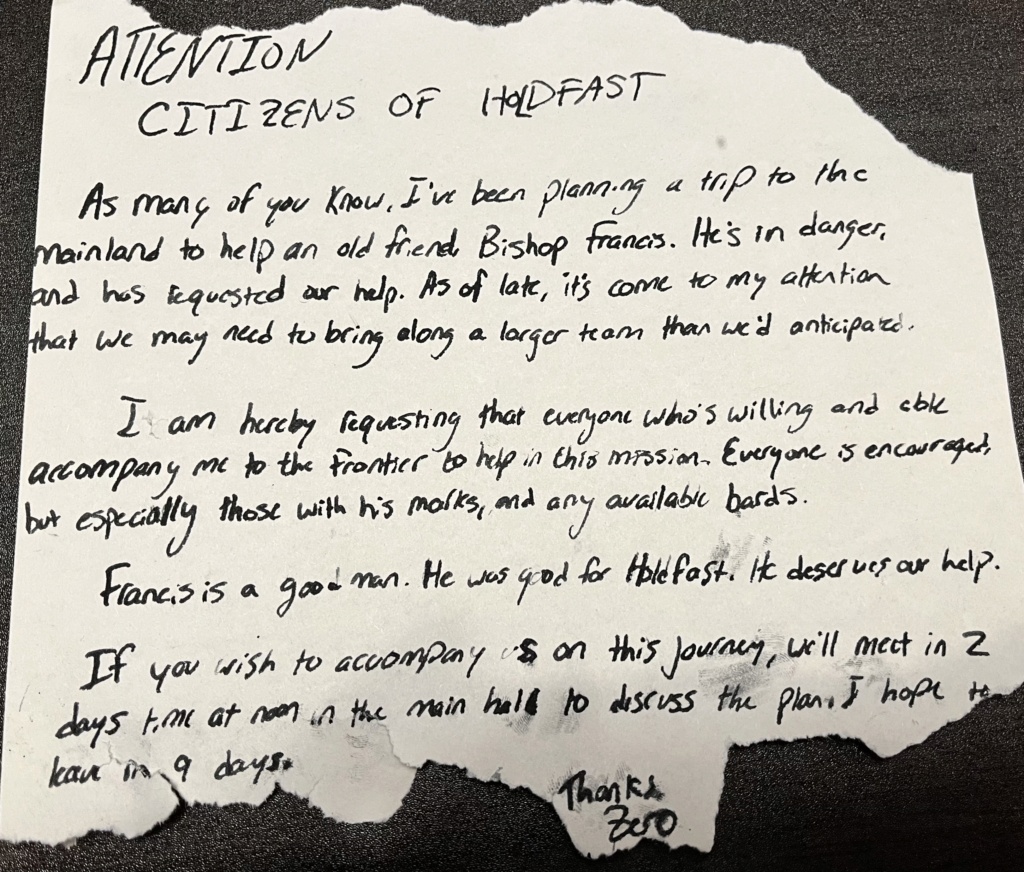 ATTENTION
CITIZENS OF HOLDFAST
As many of you know, I've been planning a trip to the
mainland to help an old friend, Bishop Francis. He's in danger,
and has requested our help. As of late, it's come to my attention
that we may need to bring along a larger team than we'd anticipated.
I am hereby requesting that everyone who's willing and able
accompany me to the Frontier to help in this mission. Everyone is encouraged,
but especially those with his marks, and any available bards.
Francis is a good man. He was good for Holdfast. He deserves our help.
If you wish to accompany us on this journey, we'll meet in 2
days time at noon in the main hall to discuss the plan. I hope to
leave in 9 days.
Thanks
Zero